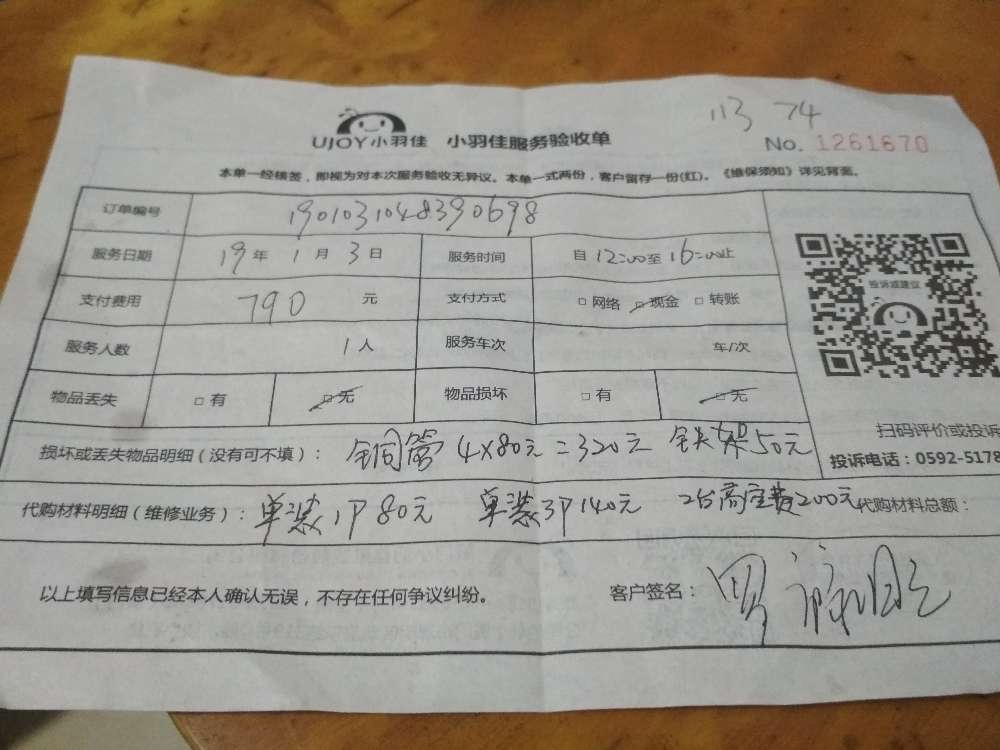 113 74
UJOY小羽佳 小羽佳服务验收单
No. 1261670
本单一经核签，即视为对本次服务验收无异议。本单一式两份，客户留存一份(红)。《维保须知》详见背面。
订单编号 1901031048390698
服务日期 19年 1月 3日 服务时间 自12:00至16:00止
支付费用 790 元 支付方式 □网络 □现金 □转账
投诉或建议
服务人数 1人 服务车次 车/次
物品丢失 □有 □无 物品损坏 □有 □无
扫码评价或投诉
损坏或丢失物品明细（没有可不填）： 铜管 4×80元=320元 铁架50元
投诉电话：0592-5178
代购材料明细（维修业务）： 单装1P 80元 单装3P 140元 2台高空费200元 代购材料总额：
以上填写信息已经本人确认无误，不存在任何争议纠纷。 客户签名：